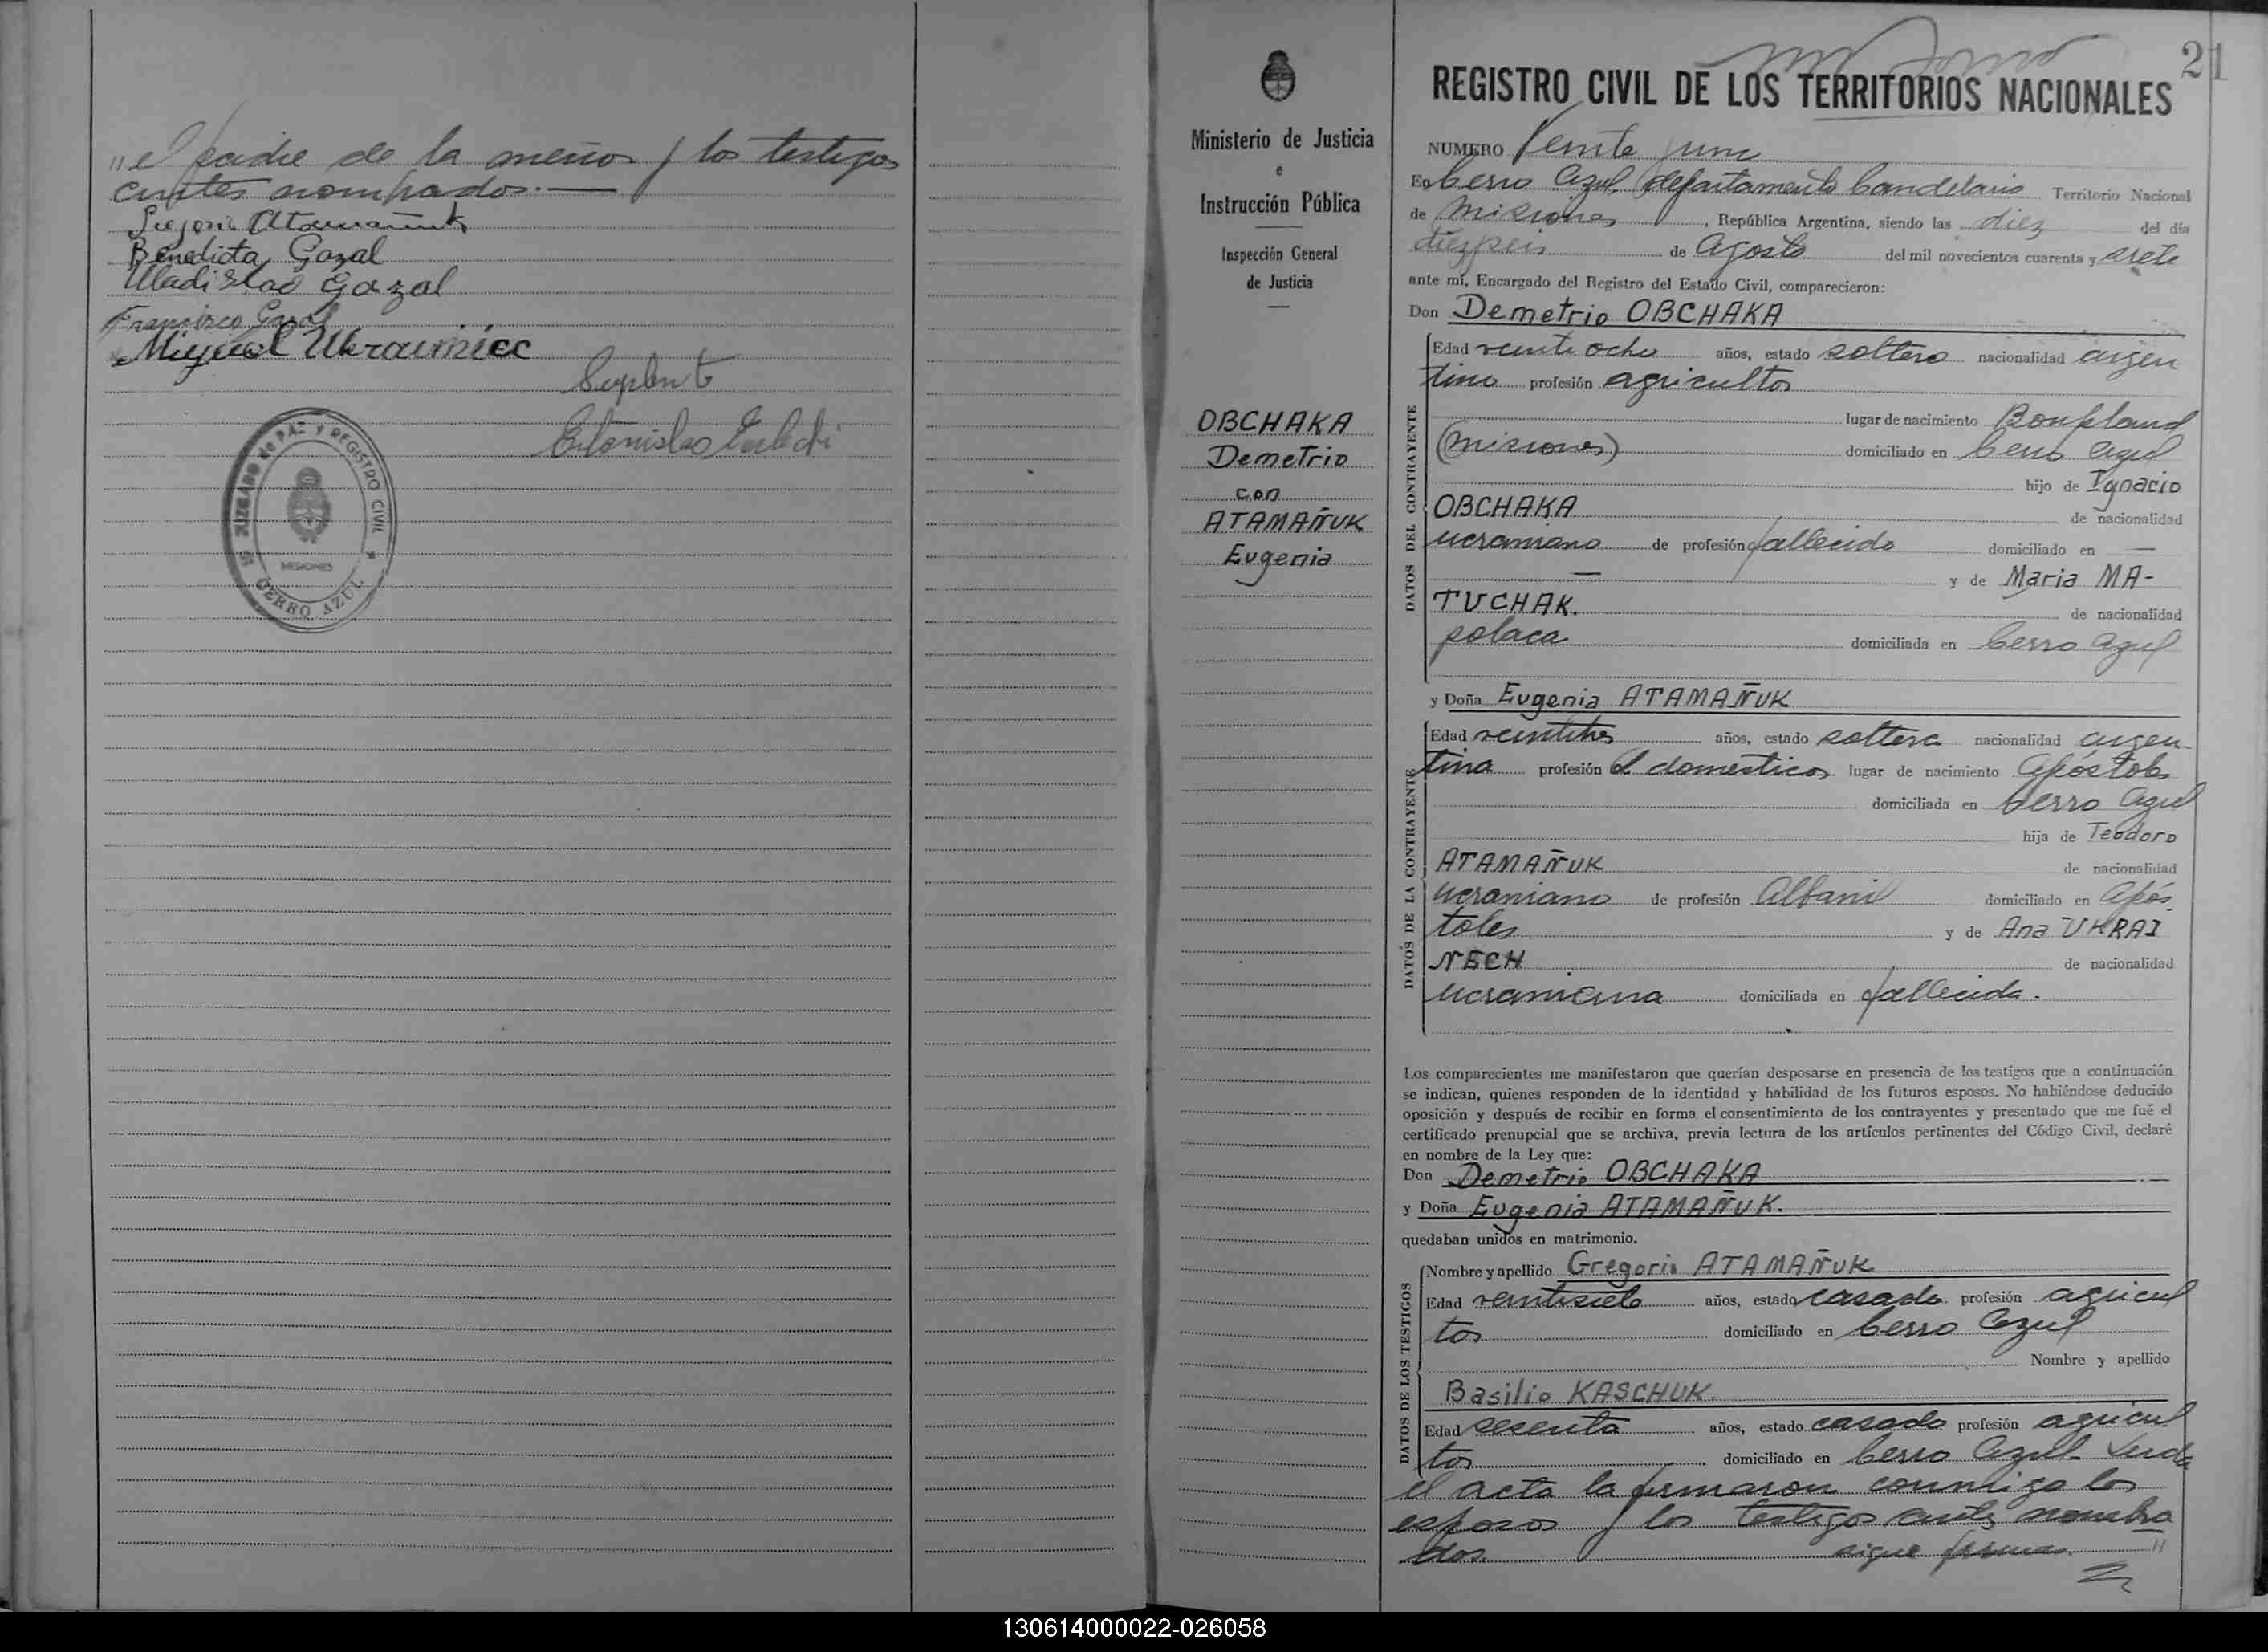 "el padre de la menor y los testigos
antes nombrados.—
Gregorio Atamañuk
Benedicta Gazal
Uladislao Gazal
Francisco Gazal
Miguel Ukrainiec
Suplente
Estanislao
JUZGADO de PAZ y REGISTRO CIVIL
MISIONES
CERRO AZUL
Ministerio de Justicia
e
Instrucción Pública
Inspección General
de Justicia
OBCHAKA
Demetrio
con
ATAMAÑUK
Eugenia
21
REGISTRO CIVIL DE LOS TERRITORIOS NACIONALES
NUMERO Veinte y uno
En Cerro Azul, departamento Candelaria Territorio Nacional
de Misiones, República Argentina, siendo las diez del día
dieziseis de Agosto del mil novecientos cuarenta y siete
ante mí, Encargado del Registro del Estado Civil, comparecieron:
Don Demetrio OBCHAKA
DATOS DEL CONTRAYENTE
Edad veinte ocho años, estado soltero nacionalidad argen
tino profesión agricultor
lugar de nacimiento Bonpland
(Misiones) domiciliado en Cerro Azul
hijo de Ygnacio
OBCHAKA de nacionalidad
ucraniano de profesión fallecido domiciliado en —
— y de Maria MA-
TUCHAK. de nacionalidad
polaca domiciliada en Cerro Azul
y Doña Eugenia ATAMAÑUK
DATOS DE LA CONTRAYENTE
Edad veintitres años, estado soltera nacionalidad argen-
tina profesión Q domesticos lugar de nacimiento Apóstoles
domiciliada en Cerro Azul
hija de Teodoro
ATAMAÑUK de nacionalidad
ucraniano de profesión Albanil domiciliado en Após
toles y de Ana UKRAI
NECH de nacionalidad
ucraniana domiciliada en fallecida.
Los comparecientes me manifestaron que querían desposarse en presencia de los testigos que a continuación
se indican, quienes responden de la identidad y habilidad de los futuros esposos. No habiéndose deducido
oposición y después de recibir en forma el consentimiento de los contrayentes y presentado que me fué el
certificado prenupcial que se archiva, previa lectura de los artículos pertinentes del Código Civil, declaré
en nombre de la Ley que:
Don Demetrio OBCHAKA
y Doña Eugenia ATAMAÑUK.
quedaban unidos en matrimonio.
DATOS DE LOS TESTIGOS
Nombre y apellido Gregorio ATAMAÑUK
Edad veintisiete años, estado casado profesión agricul
tor domiciliado en Cerro Azul
Nombre y apellido
Basilio KASCHUK
Edad sesenta años, estado casado profesión agricul
tor domiciliado en Cerro Azul Leida
el acta la firmaron conmigo los
esposos y los testigos antes nombra
dos. sigue firmas "
130614000022-026058